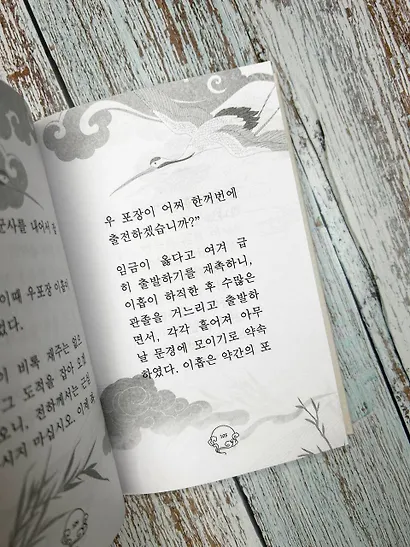 군사를 내어서
이때 우포장 이흡이
였다.
이 비록 재주는 없으
그 도적을 잡아
오니, 전하께서는 근심
시지 마십시오. 이제
우 포장이 어찌 한꺼번에
출전하겠습니까?”
임금이 옳다고 여겨 급
히 출발하기를 재촉하니,
이흡이 하직한 후 수많은
관졸을 거느리고 출발하
면서, 각각 흩어져 아무
날 문경에 모이기로 약속
하였다. 이흡은 약간의 포
109